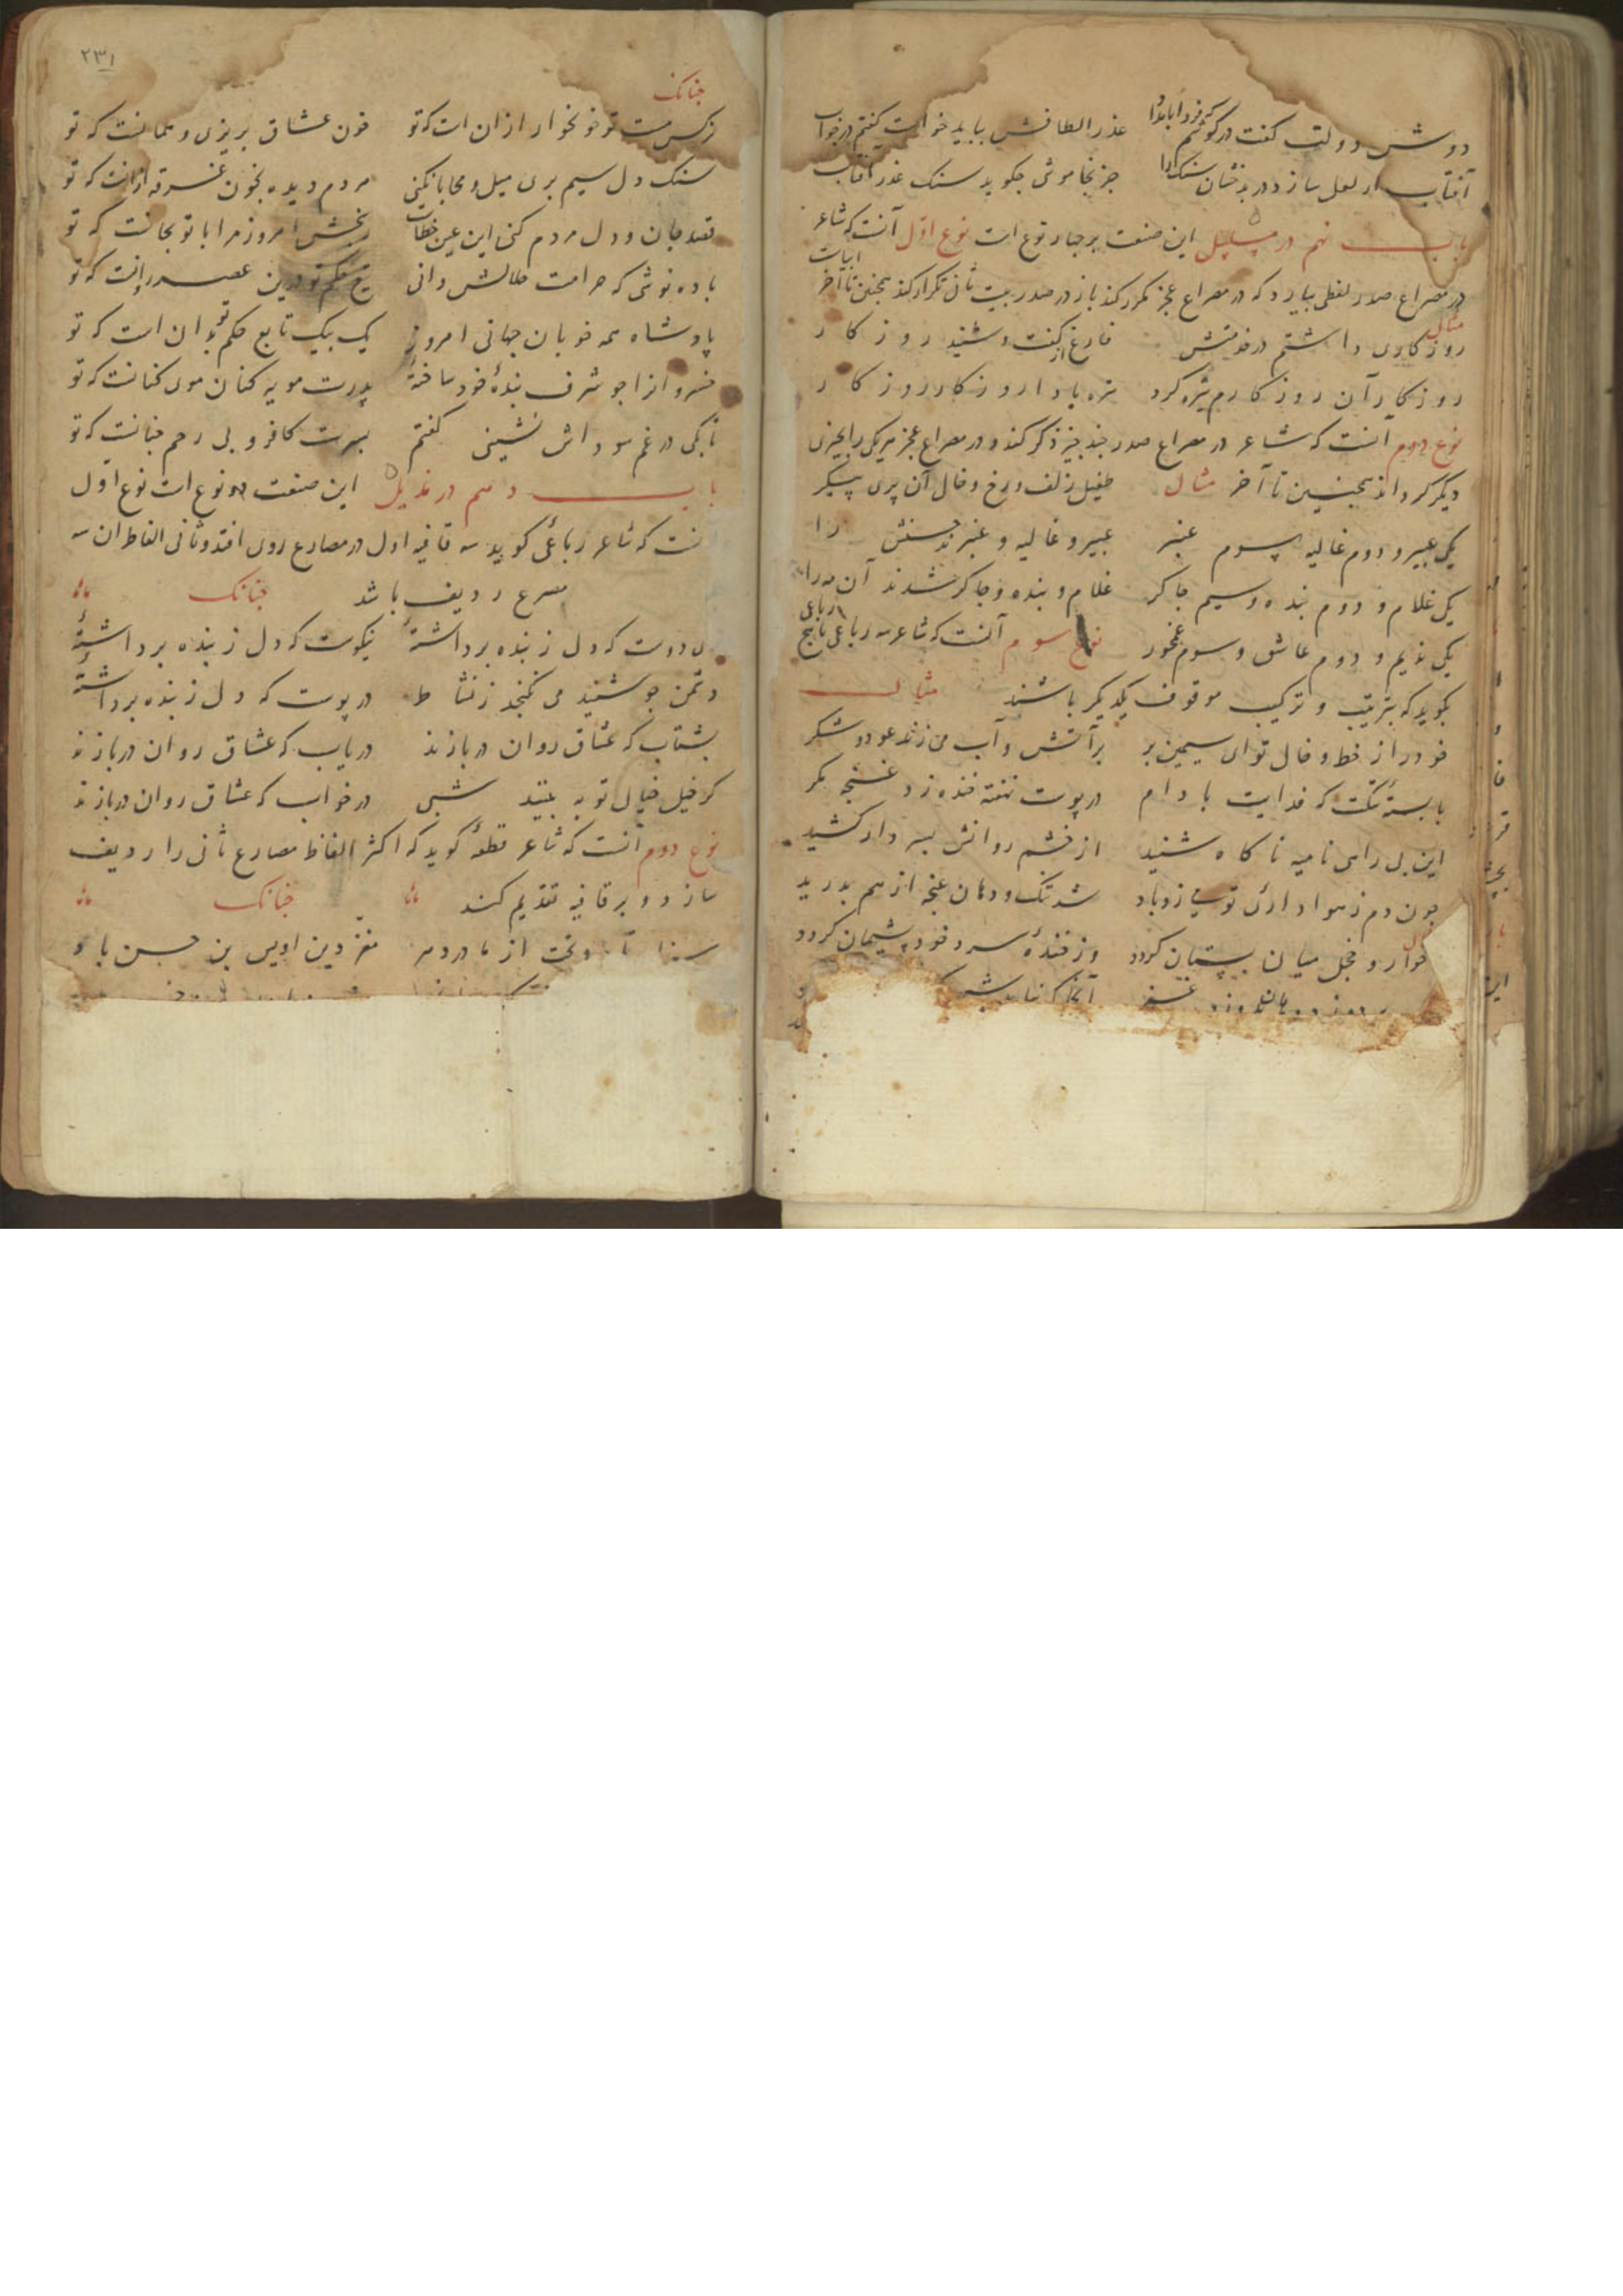 دوش دولت گفت در گوشم که فردا بامداد عذر الطافش بباید خواست گفتم در جواب
آفتاب ار لعل سازد در بدخشان سنک را جز بخاموشی جکوید سنک عذر آفتاب
باب نهم در مسلسل این صنعت بر جهار نوع است نوع اول آنست که شاعر
در مصراع صدر لفظی بیارد که در مصراع عجز مکرر کند باز در صدر بیت ثانی تکرار کند همجنین تا آخر ابیات
مثال
روزکاری داشتم در خدمتش فارغ از گفت و شنید روزکار
روزکار آن روزکارم تیره کرد تیره بادا روزکار روزکار
نوع دوم آنست که شاعر در مصراع صدر جند جیز ذکر کند و در مصراع عجز هر یکی را بجیزی
دیکر کرداند همجنین تا آخر مثال طفیل زلف و رخ و خال آن پری پیکر
یکی عبیر و دوم غالیه سوم عنبر عبیر و غالیه و عنبر حسنش را
یکی غلام و دوم بنده و سیم جاکر غلام و بنده و جاکر شدند آن مه را
یکی ندیم و دوم عاشق و سوم غمخور نوع سوم آنست که شاعر سه رباعی یا پنج رباعی
بکوید که بترتیب و ترکیب موقوف یکدیکر باشند مثال
خود را از خط و خال تو ای سیمین بر بر آتش و آب می زند عود و شکر
با بسته تنکت که فدایت بادام در پوست نهفته خنده زد غنجه مکر
این بی رامی نامیه ناکاه شنید از خشم روانش بسر دار کشید
جون دم ز هواداری تو می زد باد شد تنک و دهان غنجه از هم بدرید
خوار و خجل میان بستان کردد وز خندهٔ سرد خود پشیمان کردد
٢٣١
جنانک
نرکس مست تو خونخوار از ان است که تو خون عشاق بریزی و همانست که تو
سنک دل سیم بری میل و محابا نکنی مردم دیده بخون غرقه ازانست که تو
نقد جان و دل مردم کنی این عین خطاست رنجش امروز مرا با تو بجانست که تو
باده نوشی که حرامست حلالش دانی تیغ حکم تو درین عصر روانست که تو
پادشاه همه خوبان جهانی امروز یک بیک تابع حکم تو بدان است که تو
خسرو انرا جو شرف بندهٔ خود ساختهٔ پدرت مویه کنان موی کنانست که تو
تا بکی در غم سوداش نشینی کفتم پسرت کافر و بی رحم جنانست که تو
باب دهم در تذییل این صنعت بر دو نوع است نوع اول
نست که شاعر رباعی کوید سه قافیه اول در مصارع روی افتد و ثانی الفاظ ان سه
مصرع ردیف باشد جنانک
ی دوست که دل ز بنده برداشتهٔ نیکوست که دل ز بنده برداشتهٔ
دشمن جو شنید می نکنجد ز نشاط در پوست که دل ز بنده برداشتهٔ
بشتاب که عشاق روان در بازند دریاب که عشاق روان در بازند
کر خیل خیال تو به بینند شبی در خواب که عشاق روان در بازند
نوع دوم آنست که شاعر قطعه کوید که اکثر الفاظ مصارع ثانی را ردیف
سازد و بر قافیه تقدیم کند جنانک
وتخت از مادر دهر معز دین اویس بن حسن باد